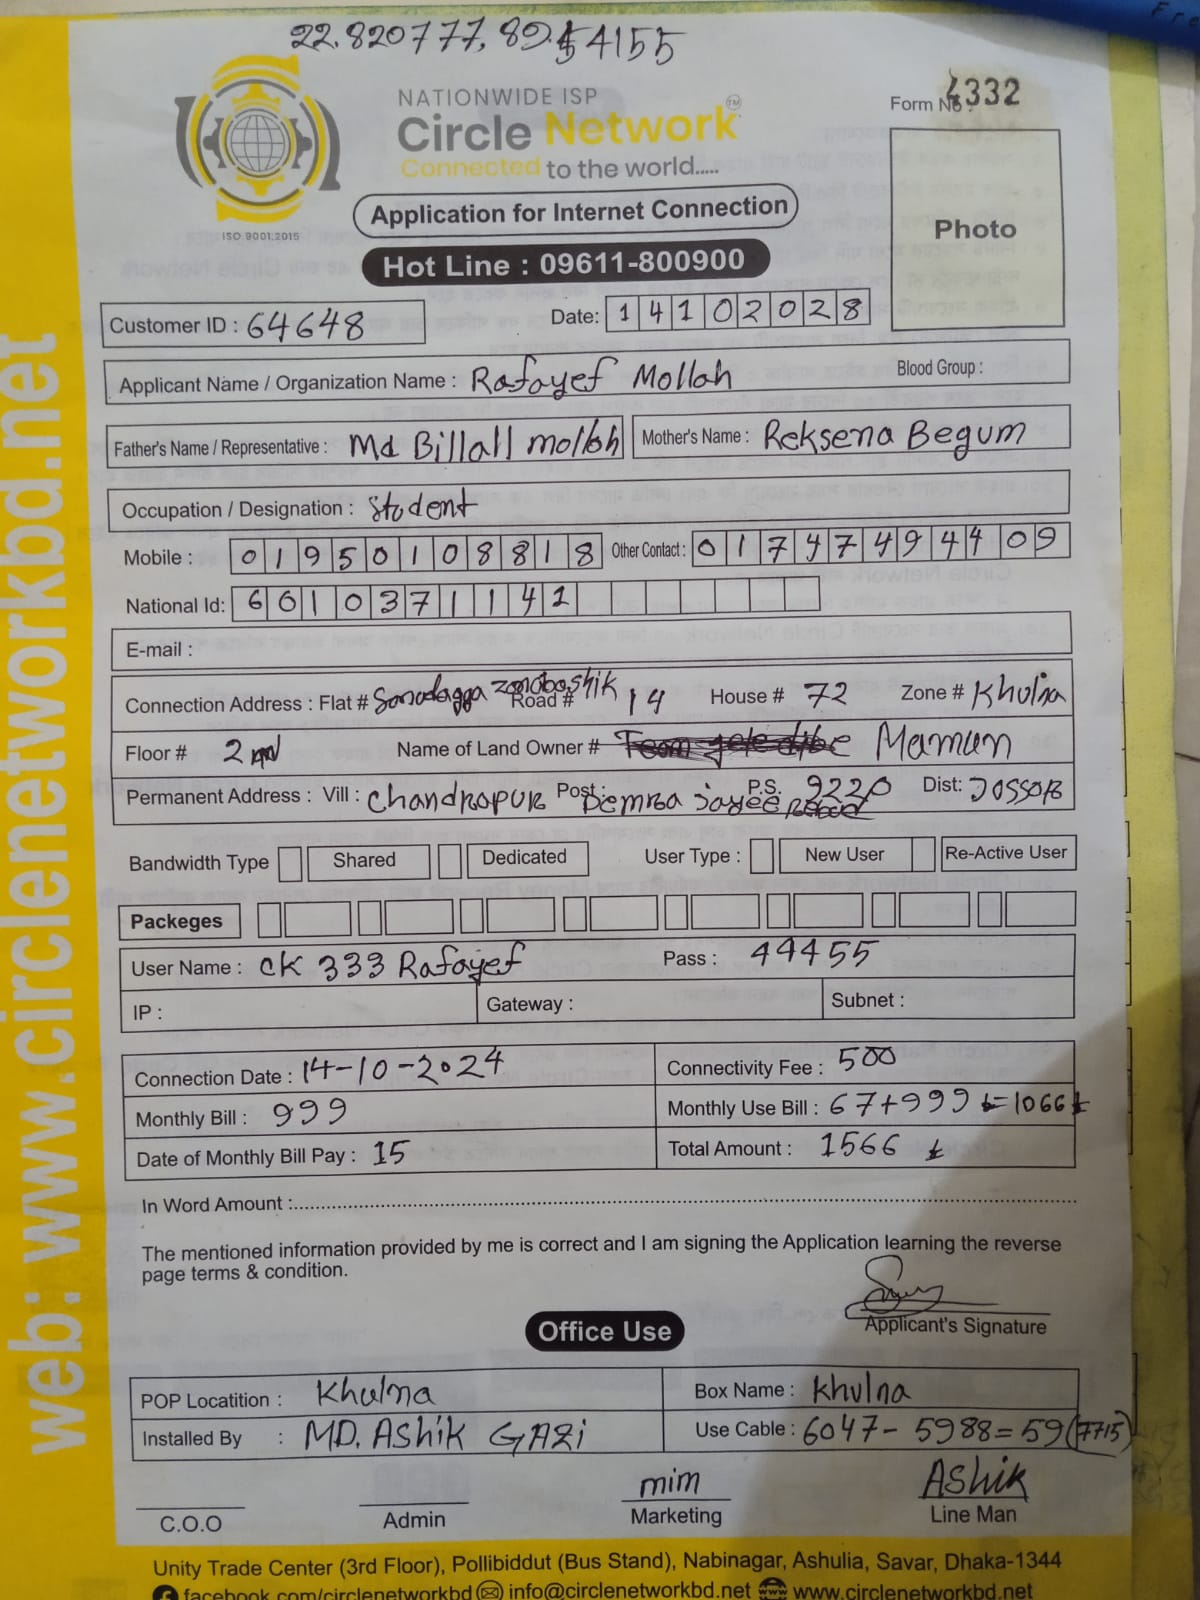 22.820777, 89.54155
NATIONWIDE ISP
Circle Network TM
Connected to the world.....
Form No 4332
Photo
ISO 9001:2015
Application for Internet Connection
Hot Line : 09611-800900
Customer ID : 64648
Date: 14102028
Applicant Name / Organization Name : Rafayef Mollah Blood Group :
Father's Name / Representative : Md Billall mollah Mother's Name : Reksena Begum
Occupation / Designation : Student
Mobile : 01950108818 Other Contact : 01747494409
National Id: 6610371142
E-mail :
Connection Address : Flat # Sonadagga Road # 14 House # 72 Zone # Khulna
Floor # 2 Name of Land Owner # Mamun
Permanent Address : Vill : Chandrapur Post : P.S. 9220 Dist: Jossor
Bandwidth Type Shared Dedicated User Type : New User Re-Active User
Packeges
User Name : CK 333 Rafayef Pass : 44455
IP : Gateway : Subnet :
Connection Date : 14-10-2024 Connectivity Fee : 500
Monthly Bill : 999 Monthly Use Bill : 67+999 = 1066
Date of Monthly Bill Pay : 15 Total Amount : 1566
In Word Amount :
The mentioned information provided by me is correct and I am signing the Application learning the reverse
page terms & condition.
Applicant's Signature
Office Use
POP Locatition : Khulna Box Name : Khulna
Installed By : MD. Ashik GAZi Use Cable : 6047 - 5988 = 59 (7715)
mim Ashik
C.O.O Admin Marketing Line Man
Unity Trade Center (3rd Floor), Pollibiddut (Bus Stand), Nabinagar, Ashulia, Savar, Dhaka-1344
facebook.com/circlenetworkbd info@circlenetworkbd.net www.circlenetworkbd.net
web: www.circlenetworkbd.net